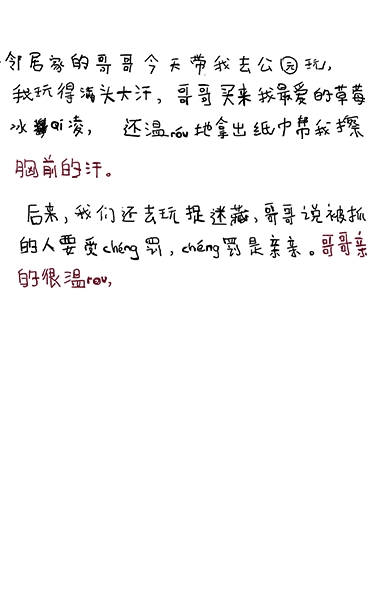 邻居家的哥哥今天带我去公园玩,
我玩得满头大汗,哥哥买来我最爱的草莓
冰qi凌, 还温róu地拿出纸巾帮我擦
胸前的汗。
后来,我们还去玩捉迷藏,哥哥说被抓
的人要受chéng罚,chéng罚是亲亲。哥哥亲
的很温rou,